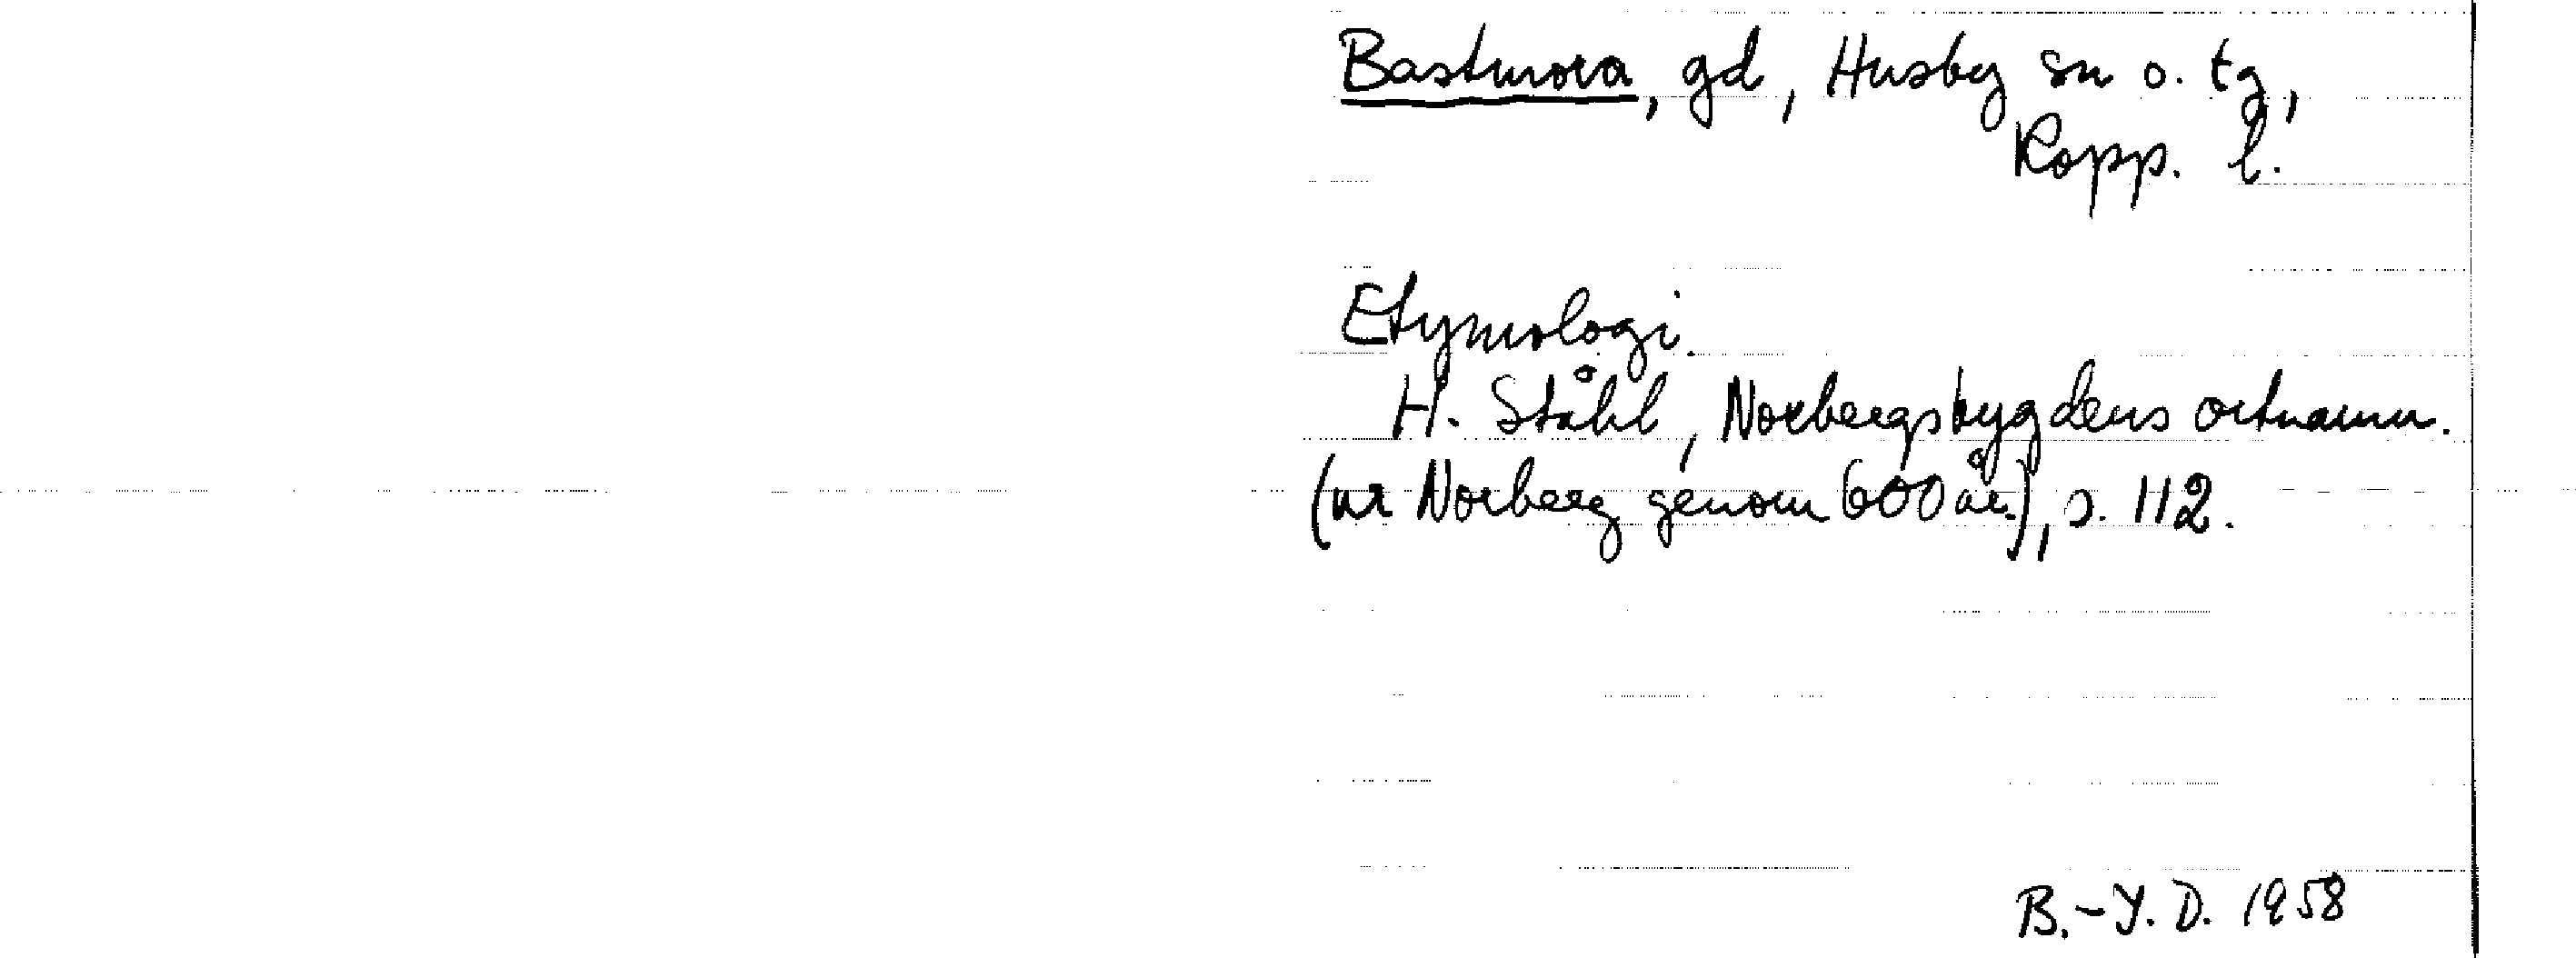 Bastmora, gd, Husby sn o. tg,
Kopp. l.
Etymologi.
H. Ståhl, Norbergsbygdens ortnamn.
(ur Norberg genom 600 år), s. 112.
B.-Y. D. 1958